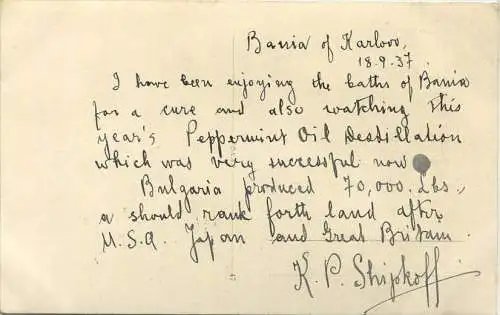 Bania of Karlovo,
18.9.37.
I have been enjoying the baths of Bania
for a cure and also watching this
year's Peppermint Oil Destillation
which was very successful now
Bulgaria produced 70,000. Lbs.,
a should rank forth land after
U.S.A. Japan and Great Britain.
K. P. Shipkoff